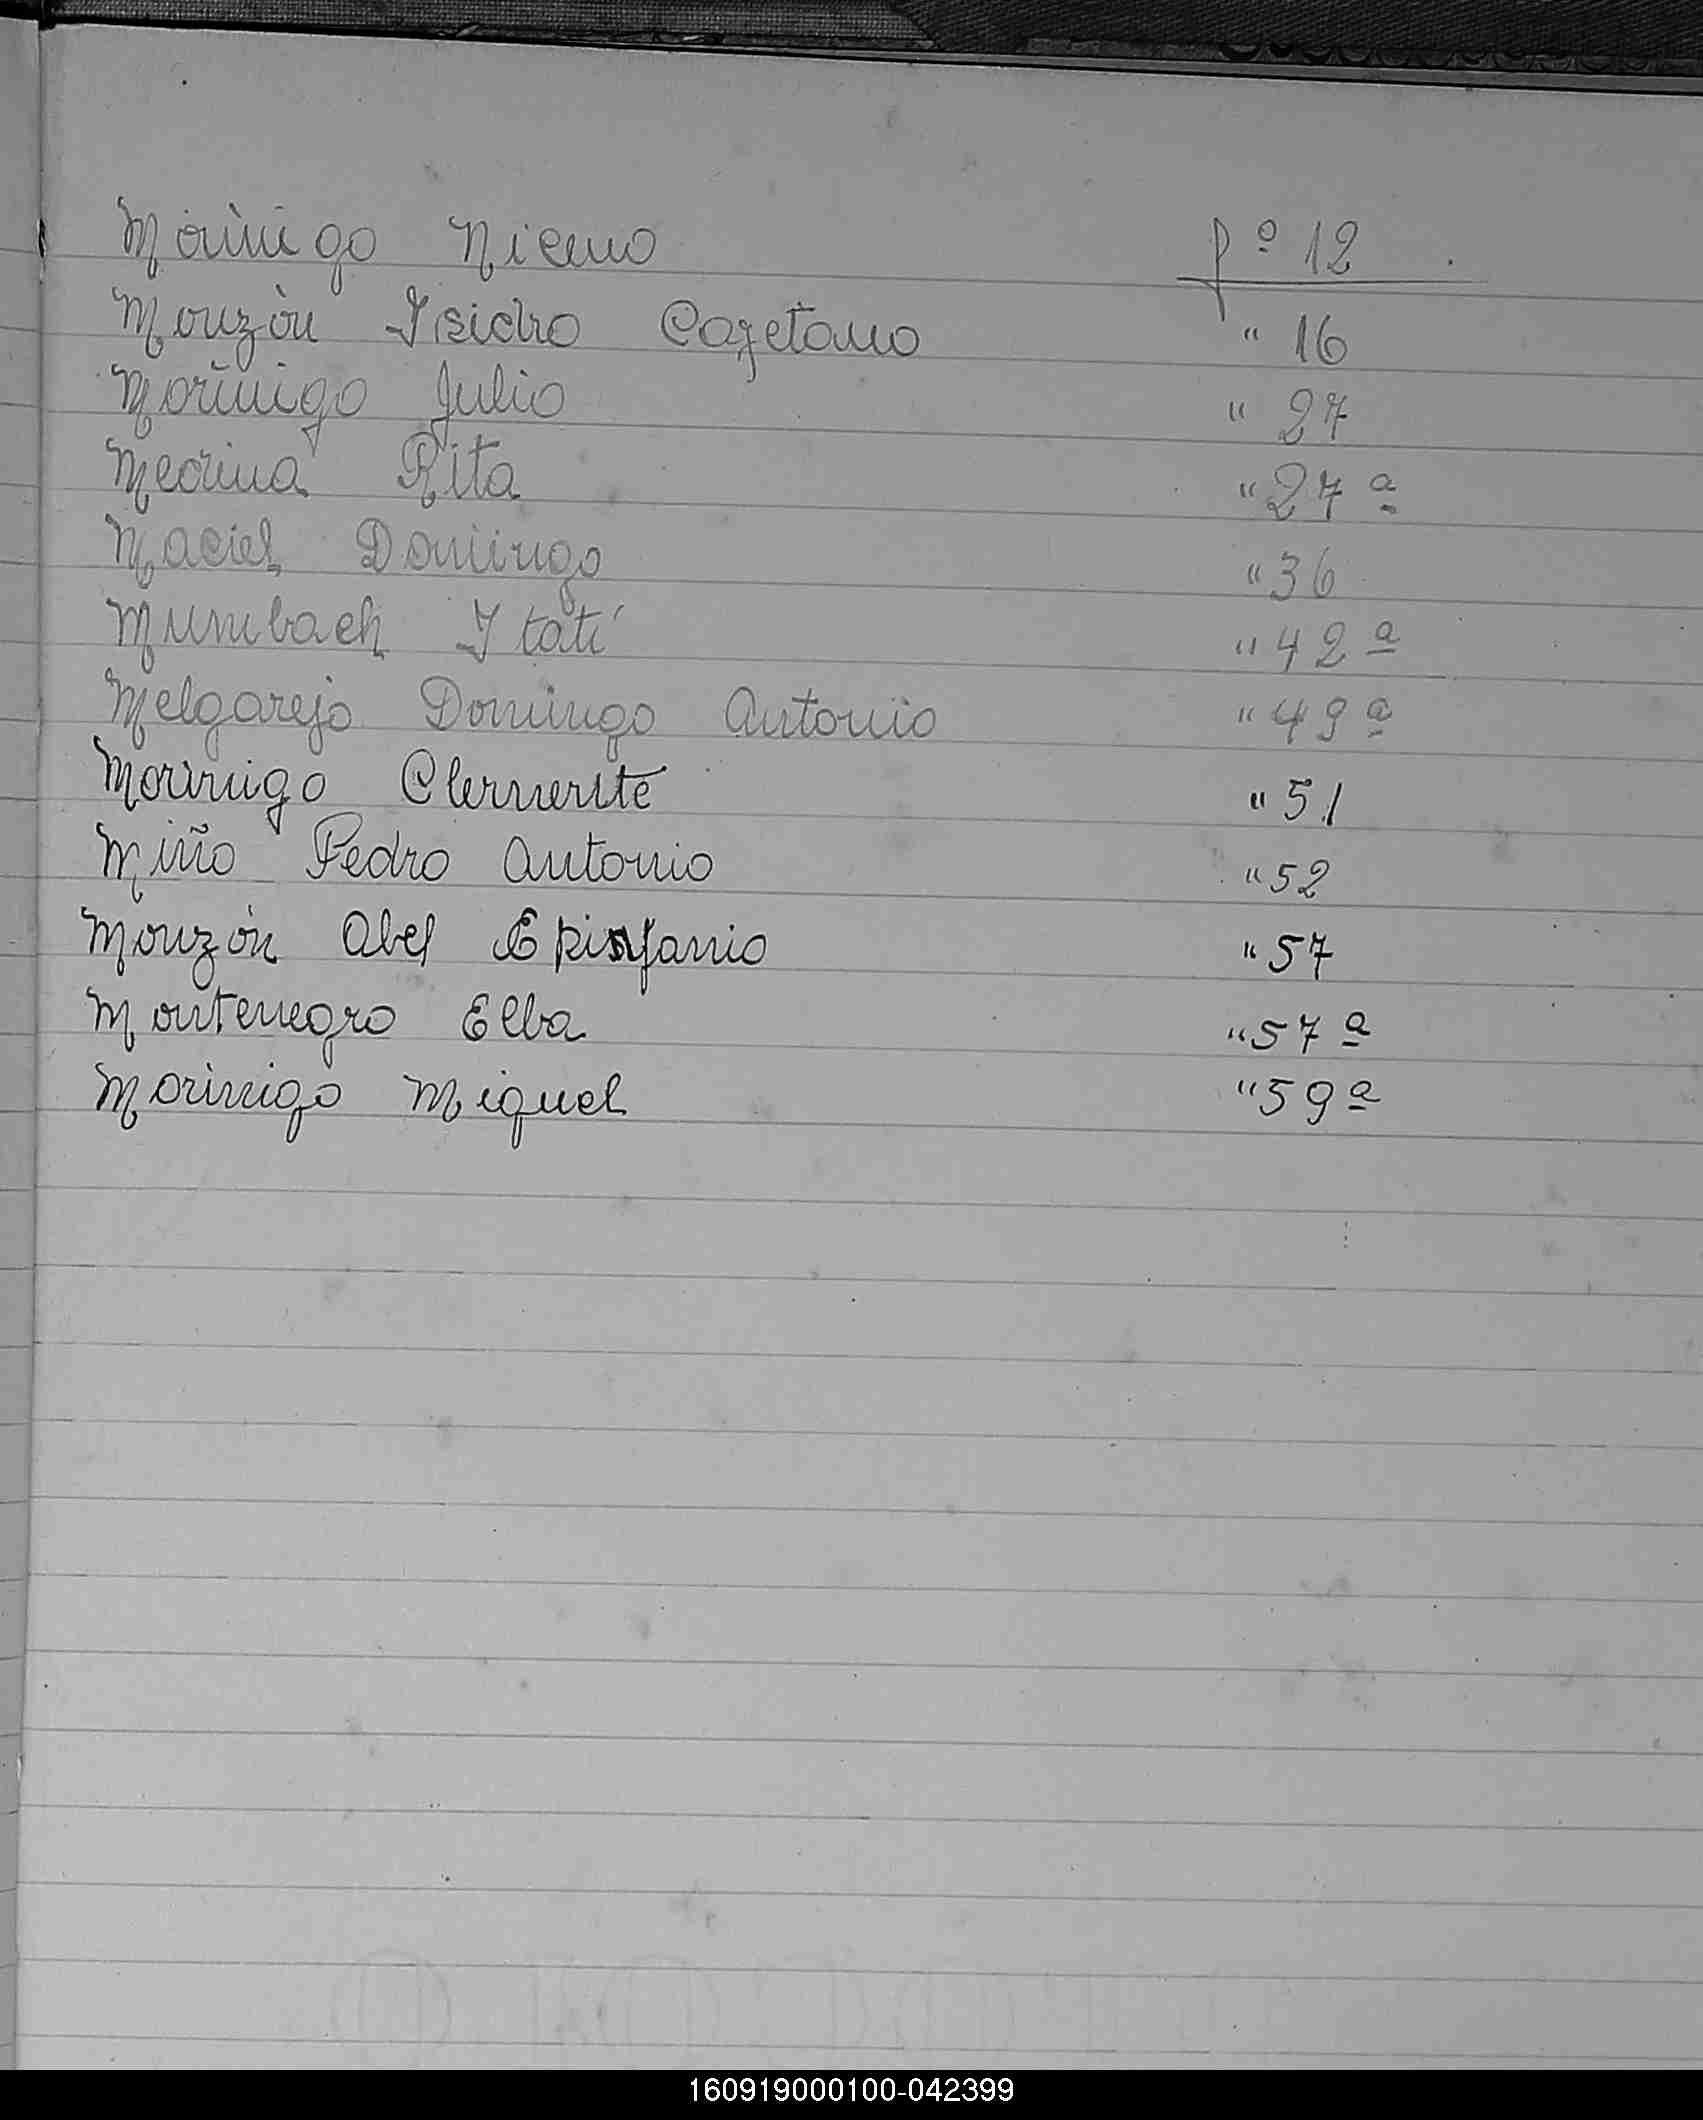 Morinigo Nieuo fº 12
Monzón Isidro Cayetano " 16
Morinigo Julio " 27
Medina Rita " 27ª
Maciel Domingo " 36
Mumbach Itatí " 42ª
Melgarejo Domingo Antonio " 49ª
Morinigo Clemente " 51
Miño Pedro Antonio " 52
Monzón Abel Epifanio " 57
Montenegro Elba " 57ª
Morinigo Miguel " 59ª
160919000100-042399